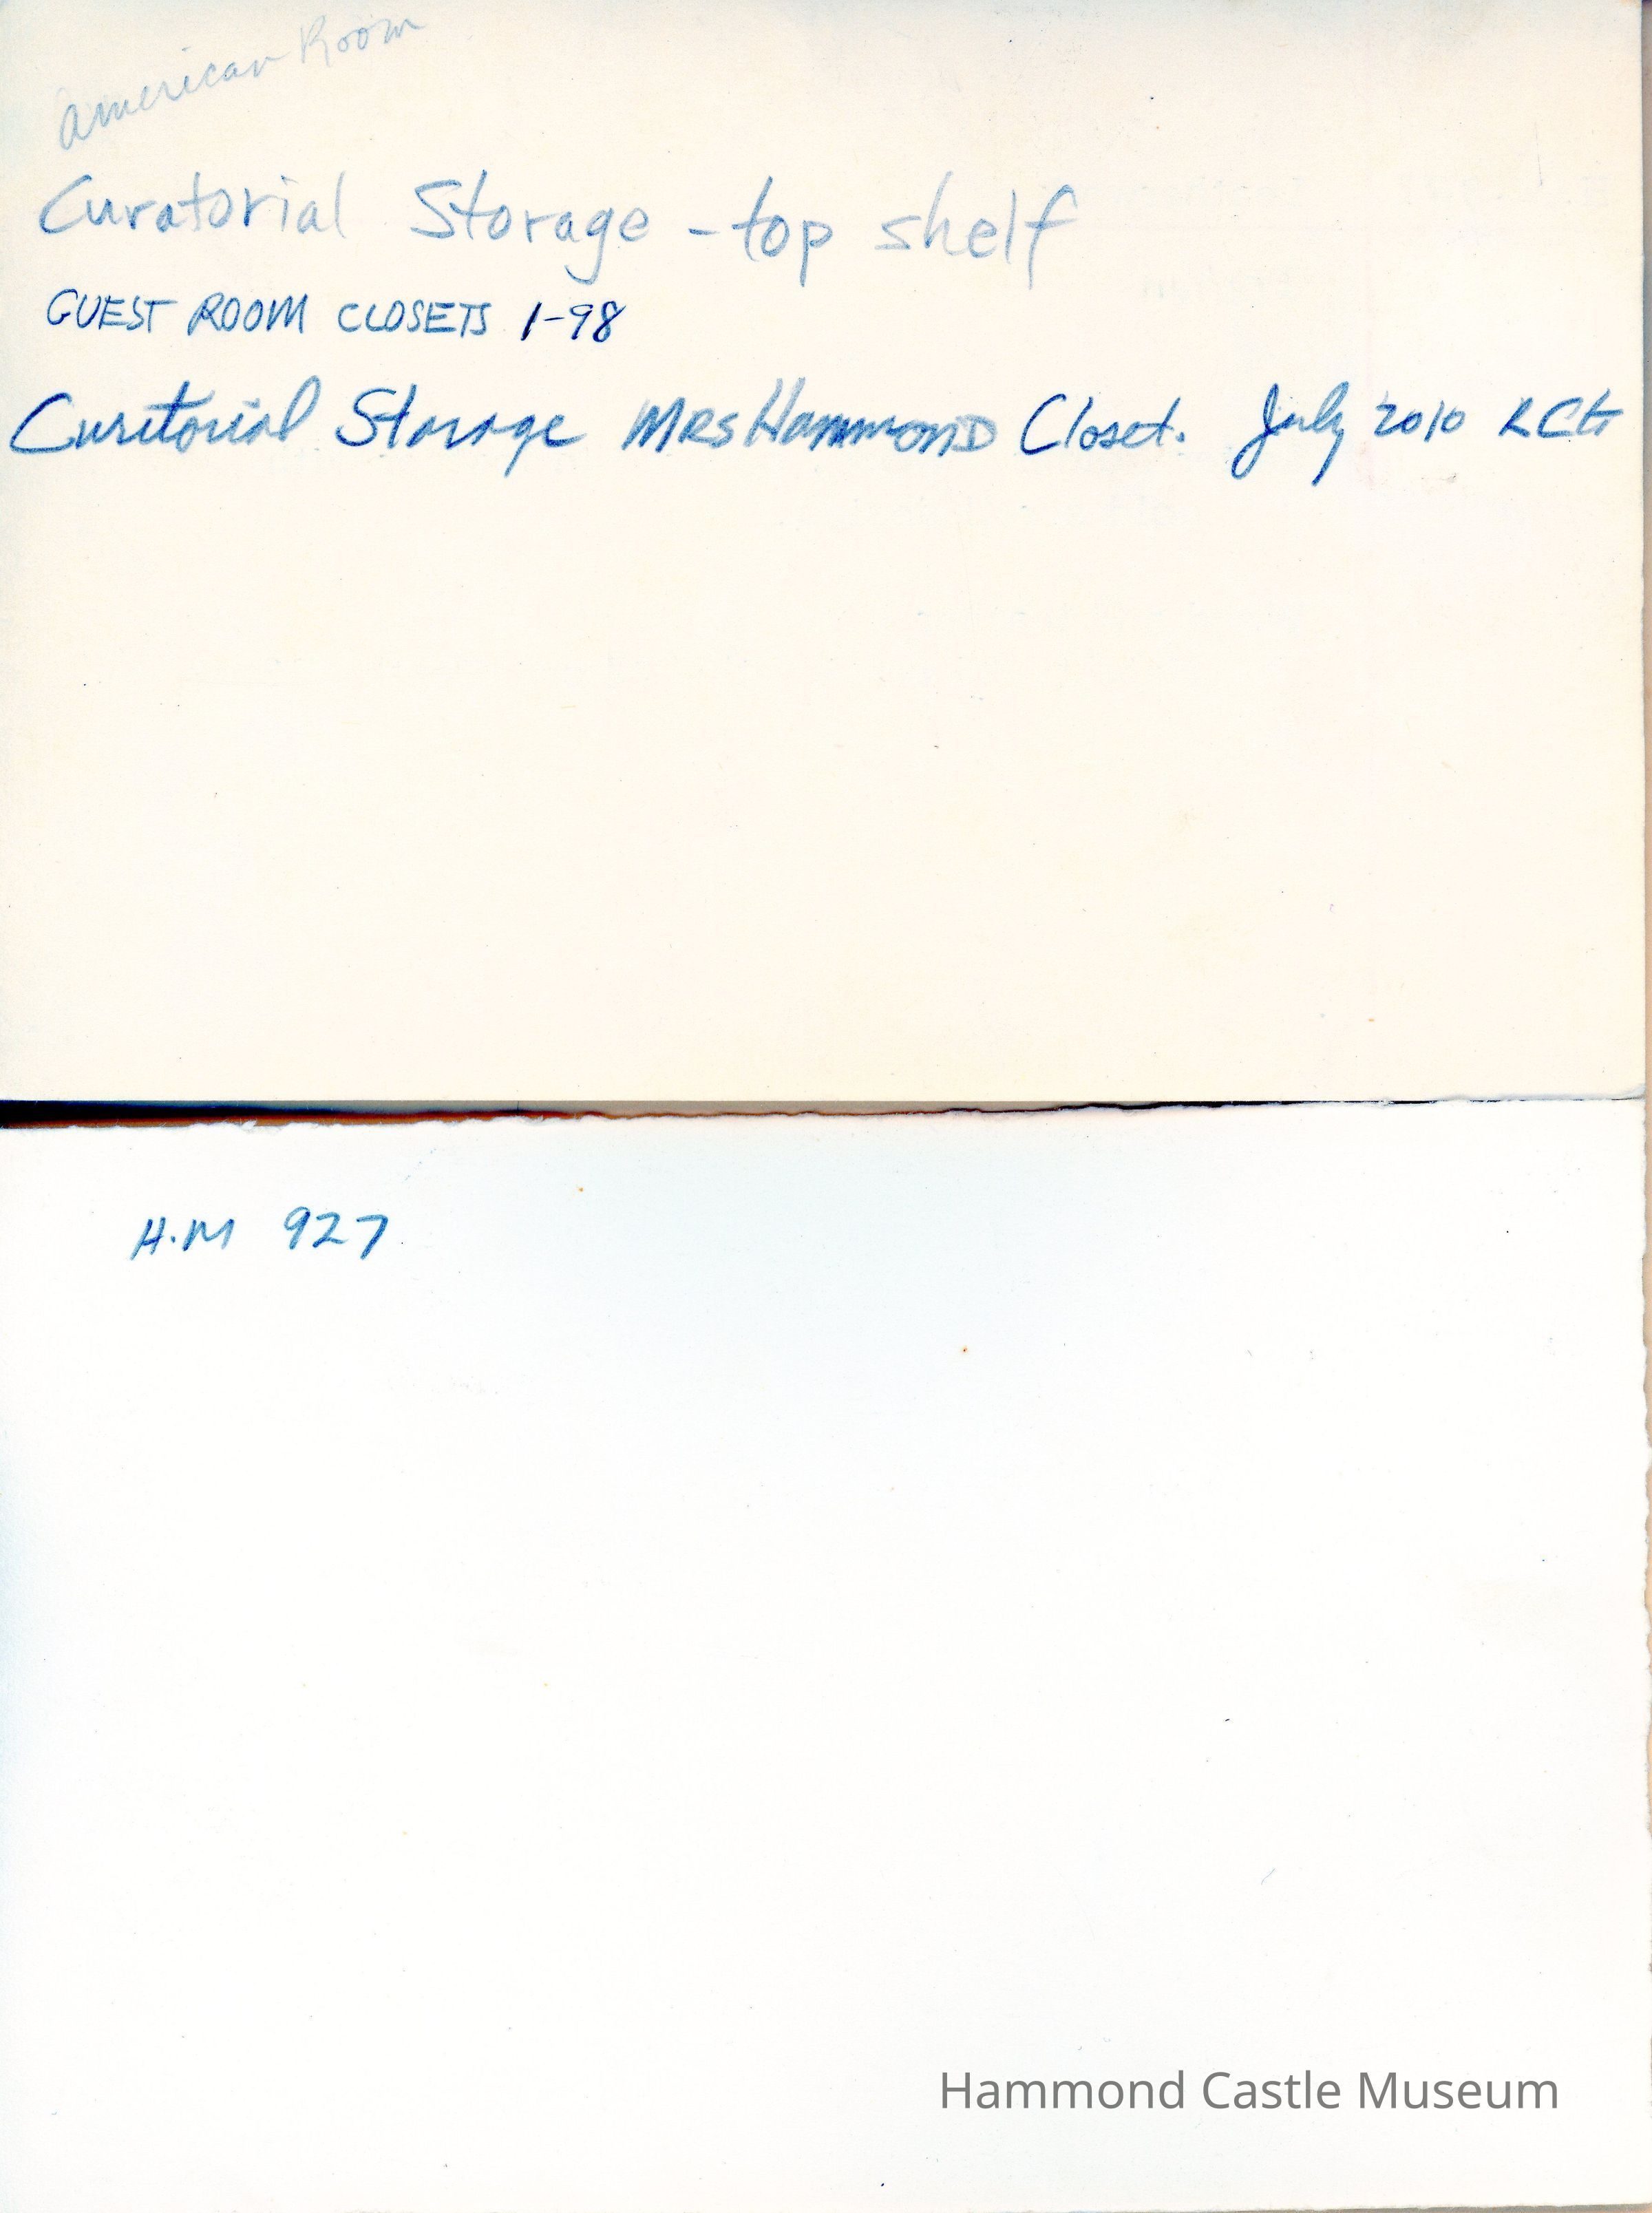 American Room
Curatorial Storage - top shelf
GUEST ROOM CLOSETS 1-98
Curitorial Storage MRS HammonD Closet. July 2010
H.M 927
Hammond Castle Museum